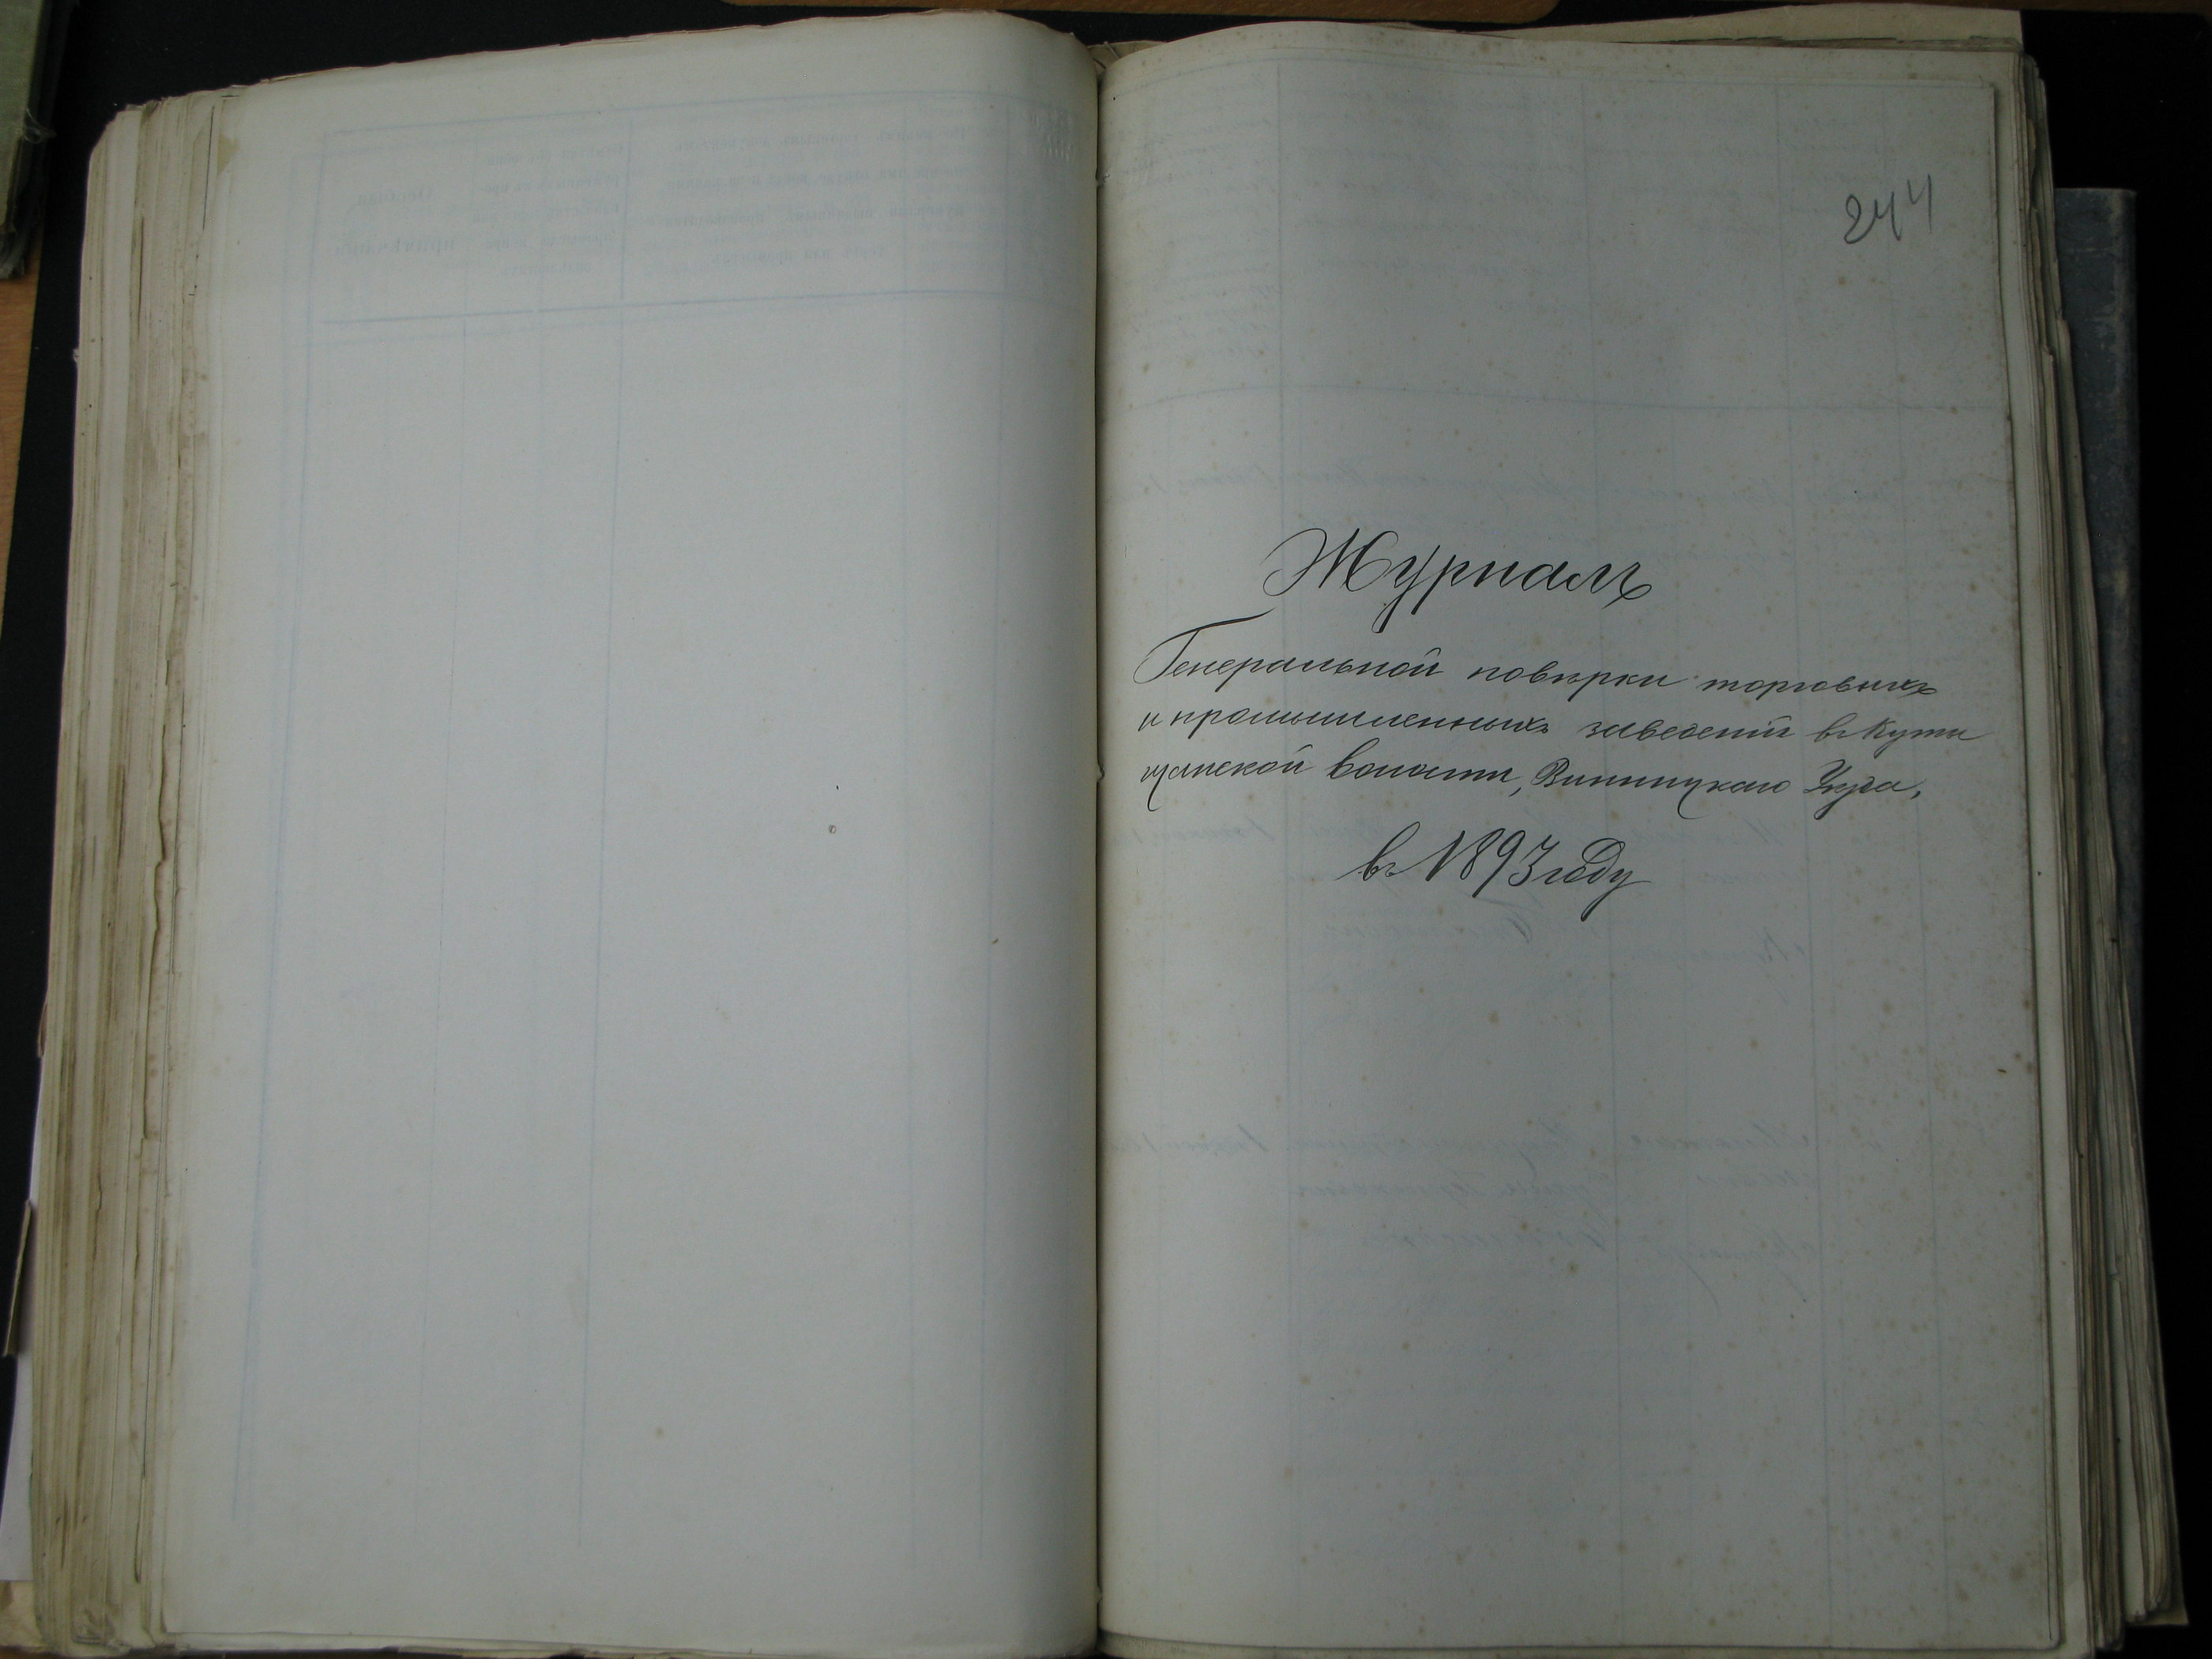 244
Журналъ
Генеральной повѣрки торговыхъ
и промышленныхъ заведенiй въ Кути
щанской волости, Винницкаго Уѣзда,
въ 1893 году